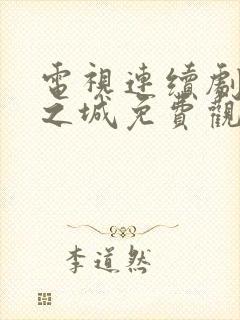 電視連續劇
之城免費觀
李道然